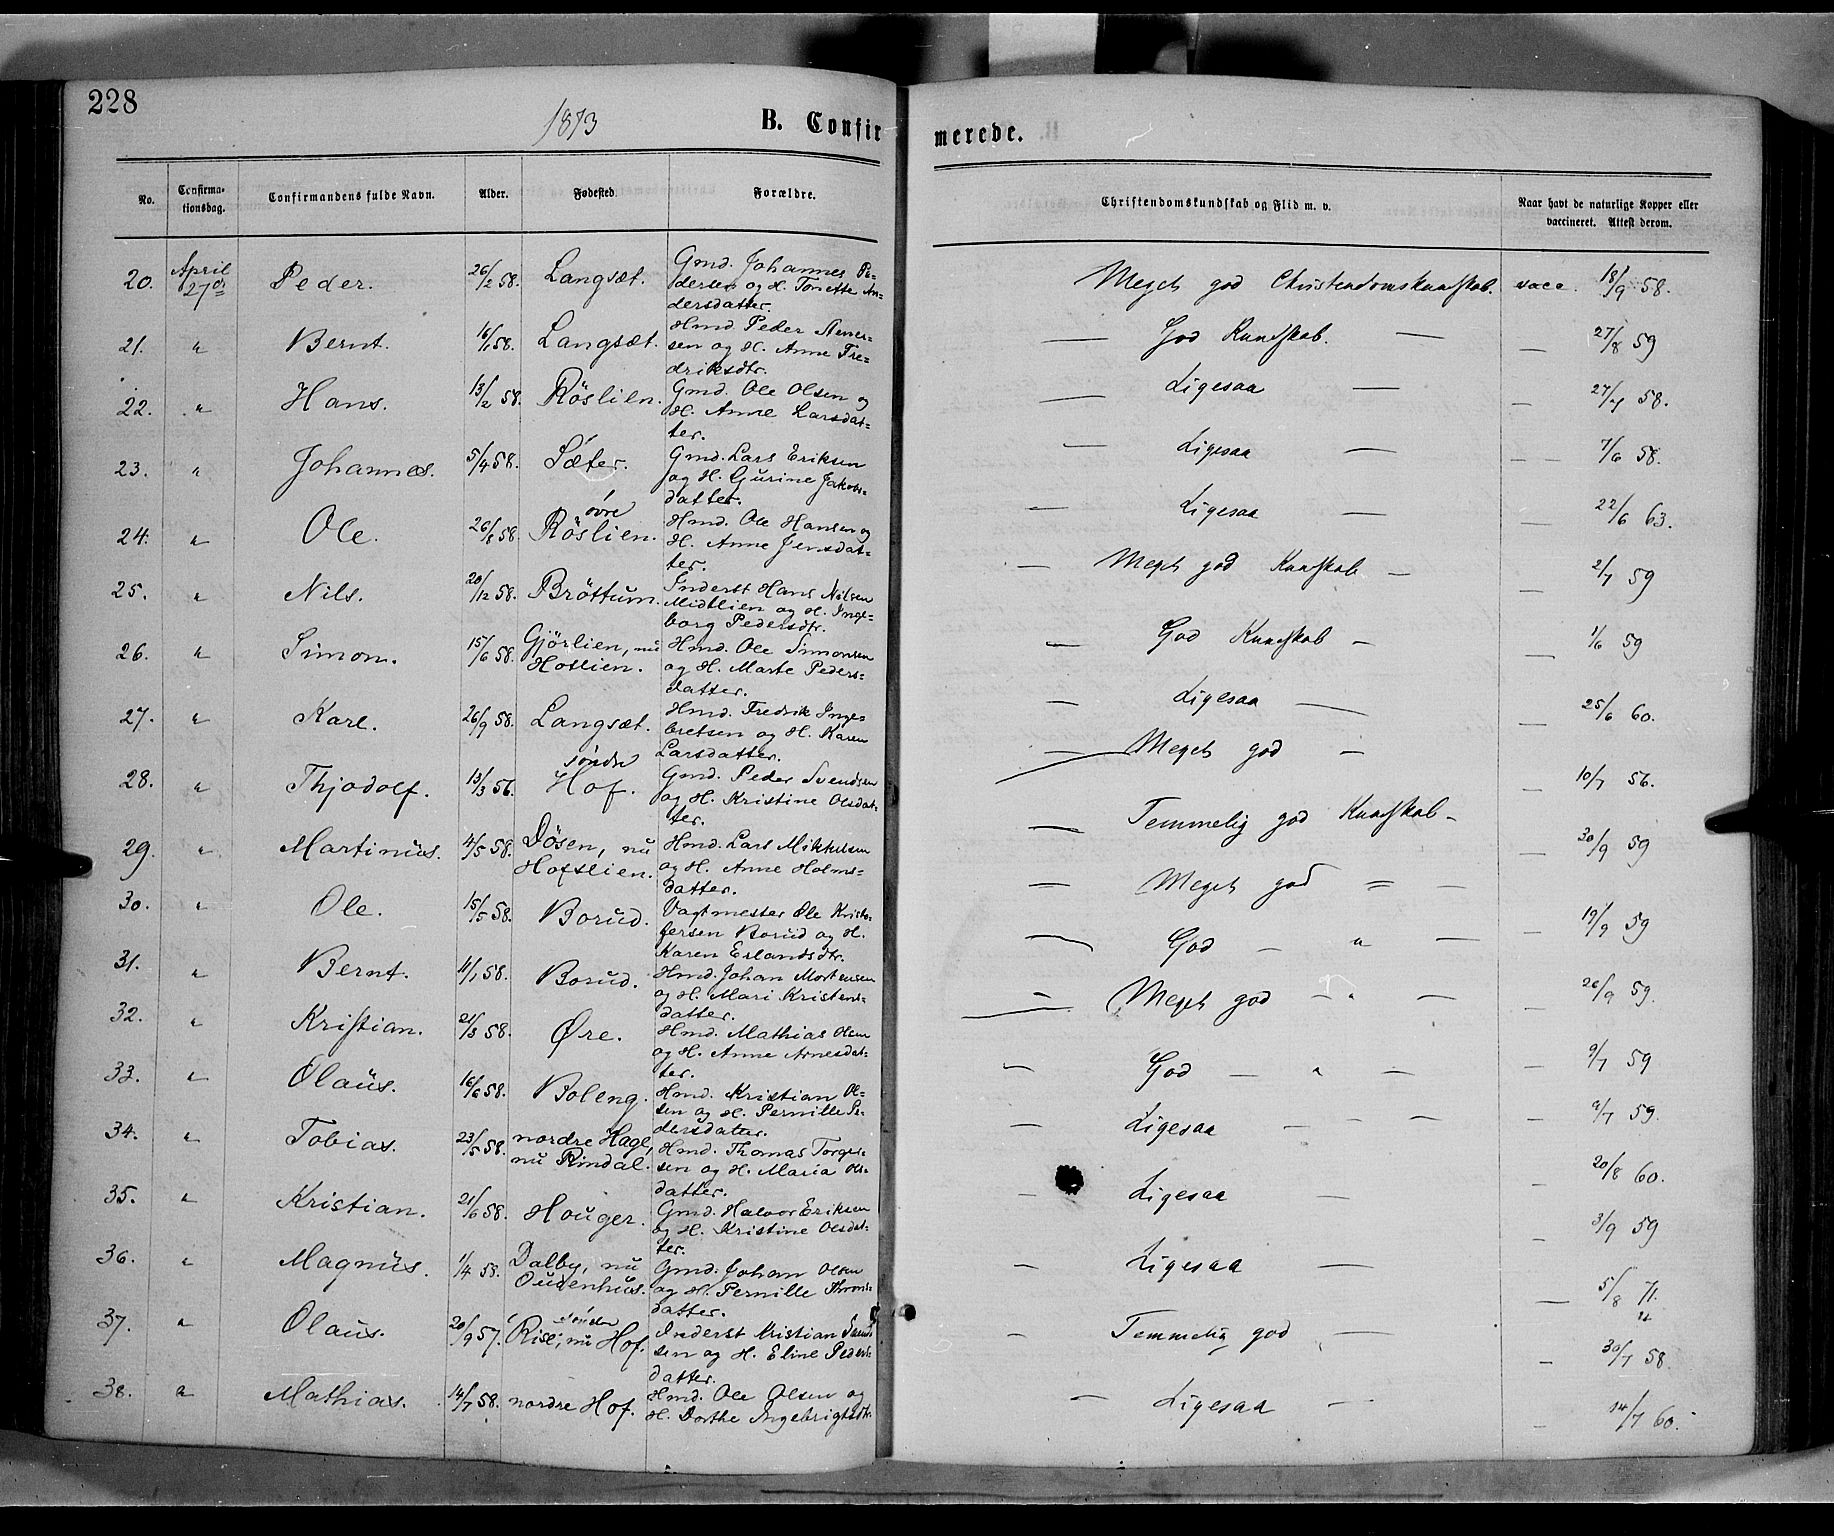 228
1873
B. Confirmerede.
No. Confirmationsdag. Confirmandens fulde Navn. Alder. Fødested. Forældre. Christendomskundskab og Flid m. v. Naar havt de naturlige Kopper eller vaccineret. Attest derom.
20. April 27de Peder. 26/2 58. Langsæt. Gmd. Johannes Pedersen og H. Tonette Andersdatter. Meget god Christendomskundskab. vacc. 18/9 58.
21. " Bernt. 16/1 58. Langsæt. Hmd. Peder Arnesen og H. Anne Fredriksdtr. — God Kundskab. — — 27/8 59
22. " Hans. 13/2 58. Röslien. Gmd. Ole Olsen og H. Anne Larsdatter. — Ligesaa — — 27/7 58.
23. " Johannes. 5/4 58. Sæter. Gmd. Lars Eriksen og H. Gurine Jakobsdatter. — Ligesaa — — 7/6 58.
24. " Ole. 26/8 58. øvre Röslien. Hmd. Ole Hansen og H. Anne Jensdatter. — Ligesaa — — 22/6 63.
25. " Nils. 20/12 58. Bröttum. Inderst Hans Nilsen Midtlien og H. Ingeborg Pedersdtr. — Meget god Kundskab — — 2/7 59
26. " Simon. 15/6 58. Gjørlien, nu Hoflien. Hmd. Ole Simonsen og H. Marte Pedersdatter. — God Kundskab — — 1/6 59
27. " Karl. 26/9 58. Langsæt. Hmd. Fredrik Ingebretsen og H. Karen Larsdatter. — Ligesaa — — 25/6 60.
28. " Thjodolf. 13/3 56. søndre Hof. Gmd. Peder Svendsen og H. Kristine Olsdatter. — Meget god — — 10/7 56.
29. " Martinus. 4/5 58. Dösen, nu Hofslien. Hmd. Lars Mikkelsen og H. Anne Holmsdatter. — Temmelig god Kundskab — — 30/9 59
30. " Ole. 15/5 58. Borud. Vagtmester Ole Kristofersen Borud og H. Karen Erlandsdtr. — Meget god = — — 19/9 59
31. " Bernt. 11/1 58. Borud. Hmd. Johan Mortensen og H. Mari Kristensdatter. — God — " — — 26/9 59.
32. " Kristian. 21/3 58. Øre. Hmd. Mathias Olsen og H. Anne Arnesdatter. — Meget god — " — — 9/7 59
33. " Olaus. 16/6 58. Boleng. Hmd. Kristian Olsen og H. Pernille Pedersdatter. — God — " — — 9/7 59.
34. " Tobias. 23/5 58. nordre Hage, nu Rindal. Hmd. Thomas Torgersen og H. Maria Olsdatter. — Ligesaa — — — 20/8 60.
35. " Kristian. 21/6 58. Houger. Gmd. Halvor Eriksen og H. Kristine Olsdatter. — Ligesaa — — 3/9 59
36. " Magnus. 1/4 58. Dalby, nu Oudenhus. Gmd. Johan Olsen og H. Pernille datter. — Ligesaa — — 5/8 71.
37. " Olaus. 20/9 57. Risli, nu søndre Hof. Inderst Kristian Svendsen og H. Eline Pedersdatter. — Temmelig god — — 30/7 58.
38. " Mathias. 14/7 58. nordre Hof. Hmd. Ole Olsen og H. Dorthe Ingebrigtsdtr. — Ligesaa — — 14/7 60.